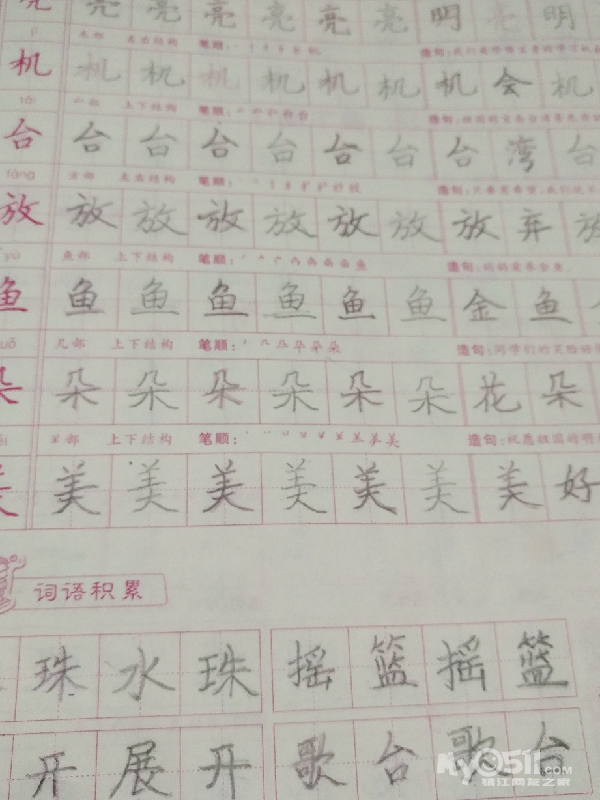 亮 亮 亮 亮 亮 亮 明 亮 明
木部 左右结构 笔顺: 造句:
机 机 机 机 机 机 机 机 会 机
tái 部 上下结构 笔顺: 造句:
台 台 台 台 台 台 台 台 湾 台
fàng 方部 左右结构 笔顺: 造句:
放 放 放 放 放 放 放 放 弃 放
yú 鱼部 上下结构 笔顺: 造句:
鱼 鱼 鱼 鱼 鱼 鱼 鱼 金 鱼 金
uǒ 几部 上下结构 笔顺: 造句:同学们的
朵 朵 朵 朵 朵 朵 朵 花 朵
ěi 部 上下结构 笔顺: 造句:祝愿祖国的
美 美 美 美 美 美 美 美 好
词语积累
珠 水 珠 摇 篮 摇 篮
开 展 开 歌 台 歌 台
my0511.com
镇江网友之家